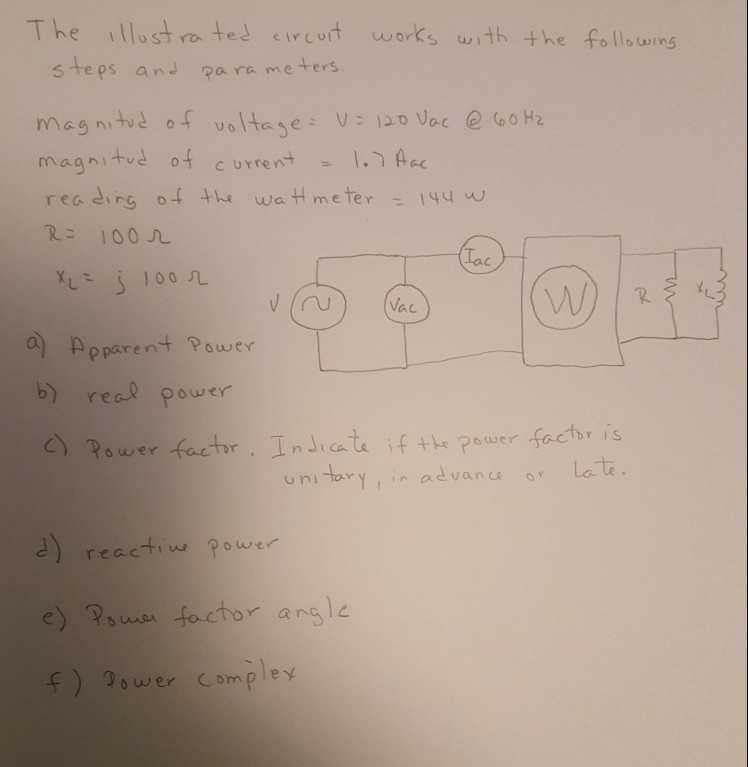 The illustrated circuit works with the following
steps and parameters.
magnitud of voltage = V = 120 Vac @ 60 Hz
magnitud of current = 1.7 Aac
reading of the wattmeter = 144 w
R = 100 Ω
XL = j 100 Ω
V
Vac
Iac
W
R
XL
a) Apparent Power
b) real power
c) Power factor. Indicate if the power factor is
unitary, in advance or Late.
d) reactive power
e) Power factor angle
f) Power complex